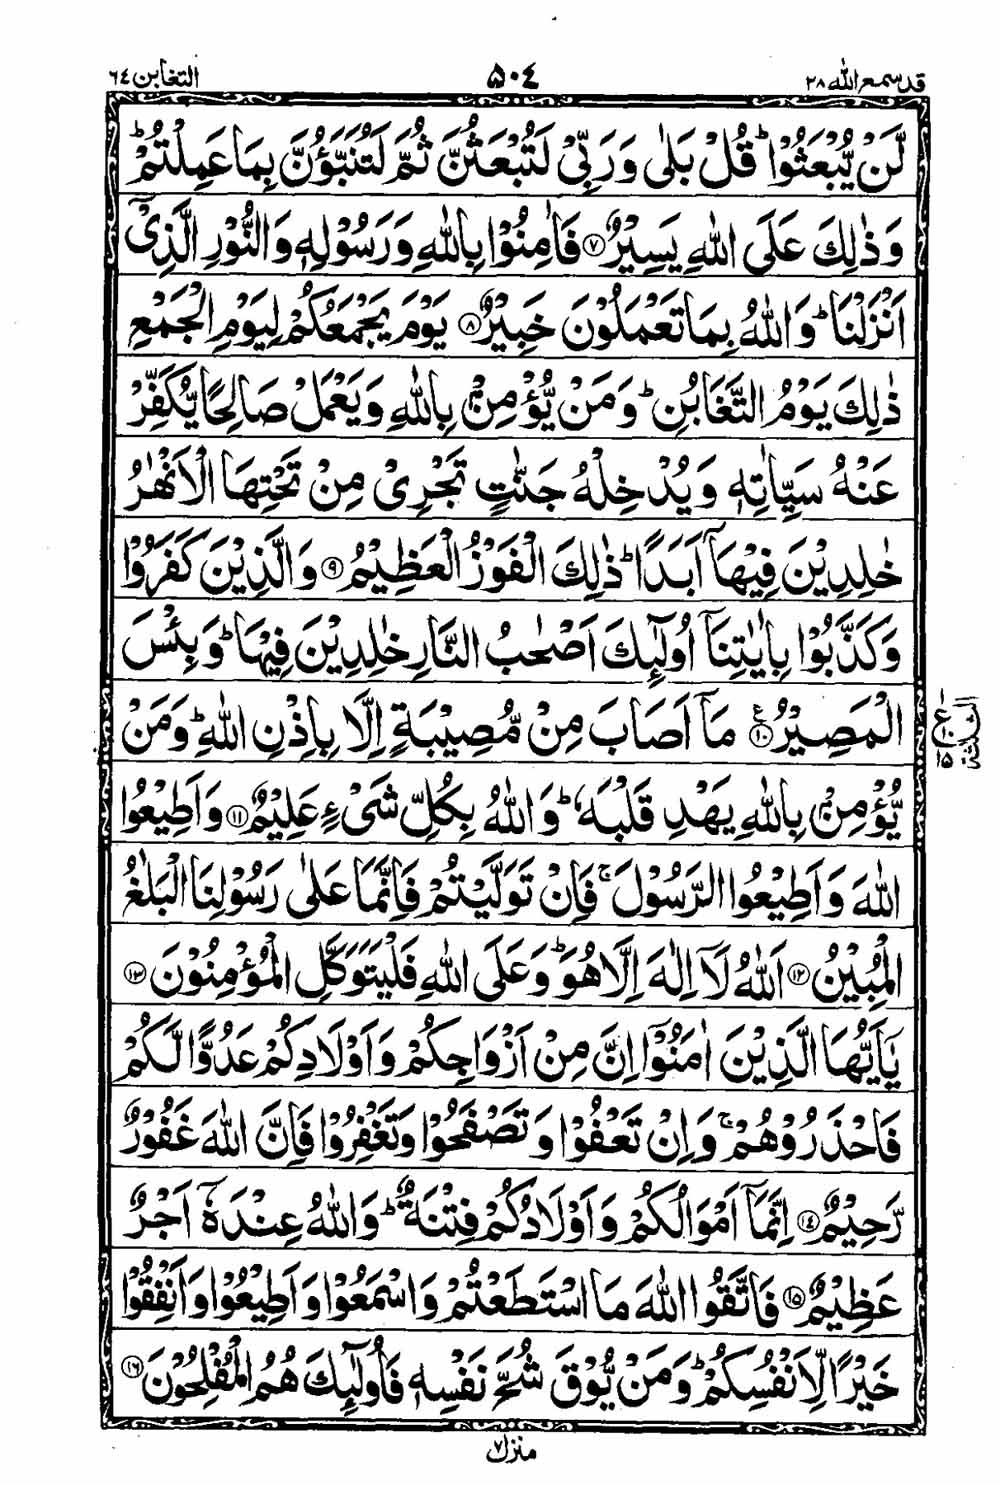 قد سمع الله ٢٨
٥٠٤
التغابن ٦٤
لَّنْ يُّبْعَثُوْا ؕ قُلْ بَلٰى وَرَبِّيْ لَتُبْعَثُنَّ ثُمَّ لَتُنَبَّؤُنَّ بِمَا عَمِلْتُمْ ؕ
وَذٰلِكَ عَلَى اللّٰهِ يَسِيْرٌ ﴿٧﴾ فَاٰمِنُوْا بِاللّٰهِ وَرَسُوْلِهٖ وَالنُّوْرِ الَّذِىْۤ
اَنْزَلْنَا ؕ وَاللّٰهُ بِمَا تَعْمَلُوْنَ خَبِيْرٌ ﴿٨﴾ يَوْمَ يَجْمَعُكُمْ لِيَوْمِ الْجَمْعِ
ذٰلِكَ يَوْمُ التَّغَابُنِ ؕ وَمَنْ يُّؤْمِنْۢ بِاللّٰهِ وَيَعْمَلْ صَالِحًا يُّكَفِّرْ
عَنْهُ سَيِّاٰتِهٖ وَيُدْخِلْهُ جَنّٰتٍ تَجْرِىْ مِنْ تَحْتِهَا الْاَنْهٰرُ
خٰلِدِيْنَ فِيْهَاۤ اَبَدًا ؕ ذٰلِكَ الْفَوْزُ الْعَظِيْمُ ﴿٩﴾ وَالَّذِيْنَ كَفَرُوْا
وَكَذَّبُوْا بِاٰيٰتِنَاۤ اُولٰٓئِكَ اَصْحٰبُ النَّارِ خٰلِدِيْنَ فِيْهَا ؕ وَبِئْسَ
الْمَصِيْرُ ﴿١٠﴾ ع مَاۤ اَصَابَ مِنْ مُّصِيْبَةٍ اِلَّا بِاِذْنِ اللّٰهِ ؕ وَمَنْ
يُّؤْمِنْۢ بِاللّٰهِ يَهْدِ قَلْبَهٗ ؕ وَاللّٰهُ بِكُلِّ شَىْءٍ عَلِيْمٌ ﴿١١﴾ وَاَطِيْعُوا
اللّٰهَ وَاَطِيْعُوا الرَّسُوْلَ ۚ فَاِنْ تَوَلَّيْتُمْ فَاِنَّمَا عَلٰى رَسُوْلِنَا الْبَلٰغُ
الْمُبِيْنُ ﴿١٢﴾ اَللّٰهُ لَاۤ اِلٰهَ اِلَّا هُوَ ؕ وَعَلَى اللّٰهِ فَلْيَتَوَكَّلِ الْمُؤْمِنُوْنَ ﴿١٣﴾
يٰۤاَيُّهَا الَّذِيْنَ اٰمَنُوْۤا اِنَّ مِنْ اَزْوَاجِكُمْ وَاَوْلَادِكُمْ عَدُوًّا لَّكُمْ
فَاحْذَرُوْهُمْ ۚ وَاِنْ تَعْفُوْا وَتَصْفَحُوْا وَتَغْفِرُوْا فَاِنَّ اللّٰهَ غَفُوْرٌ
رَّحِيْمٌ ﴿١٤﴾ اِنَّمَاۤ اَمْوَالُكُمْ وَاَوْلَادُكُمْ فِتْنَةٌ ؕ وَاللّٰهُ عِنْدَهٗۤ اَجْرٌ
عَظِيْمٌ ﴿١٥﴾ فَاتَّقُوا اللّٰهَ مَا اسْتَطَعْتُمْ وَاسْمَعُوْا وَاَطِيْعُوْا وَاَنْفِقُوْا
خَيْرًا لِّاَنْفُسِكُمْ ؕ وَمَنْ يُّوْقَ شُحَّ نَفْسِهٖ فَاُولٰٓئِكَ هُمُ الْمُفْلِحُوْنَ ﴿١٦﴾
الثلاثة
ع
١٥
منزل ٧